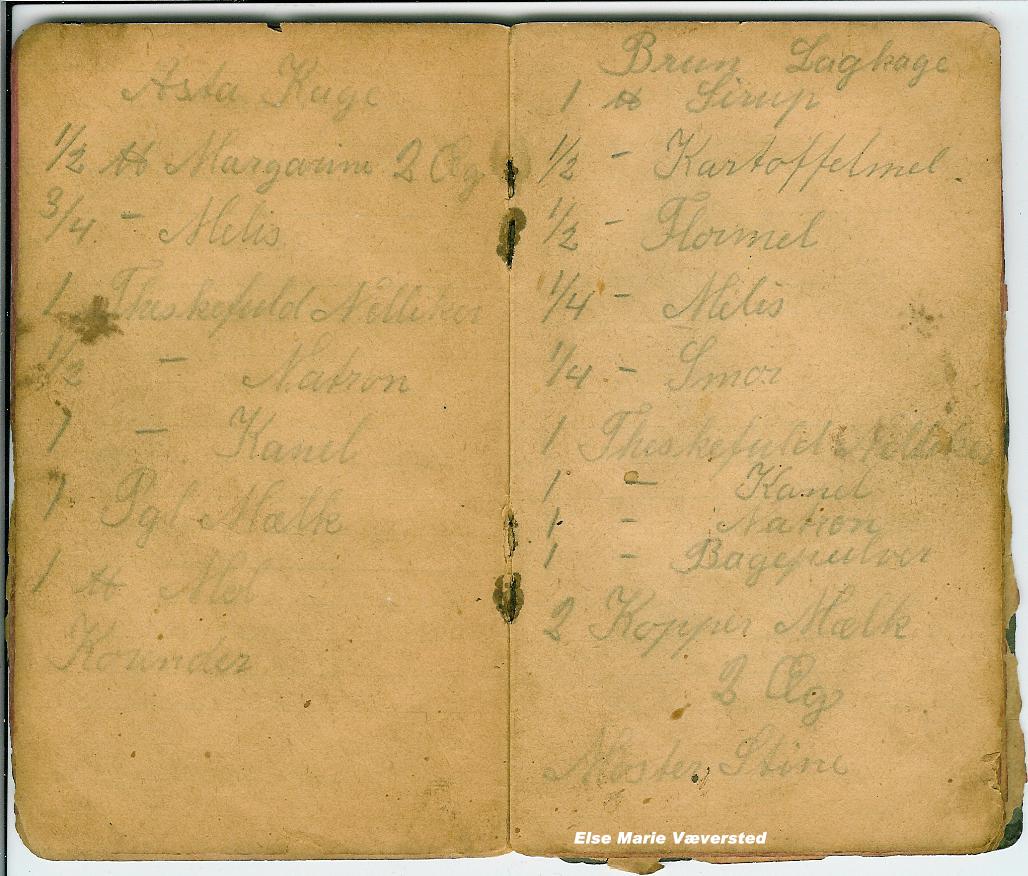 Asta Kage
1/2 ℔ Margarine 2 Æg
3/4 - Melis
1 Theskefuld Nelliker
1/2 - Natron
1 - Kanel
1 Pgl Mælk
1 ℔ Mel
Kounder
Brun Lagkage
1 ℔ Sirup
1/2 - Kartoffelmel
1/2 - Flormel
1/4 - Melis
1/4 - Smør
1 Theskefuld Nelliker
1 - Kanel
1 - Natron
1 - Bagepulver
2 Kopper Mælk
2 Æg
Moster Stine
Else Marie Væversted